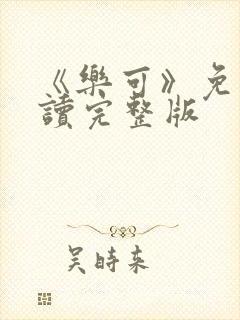 《樂可》免
讀完整版
吴時来